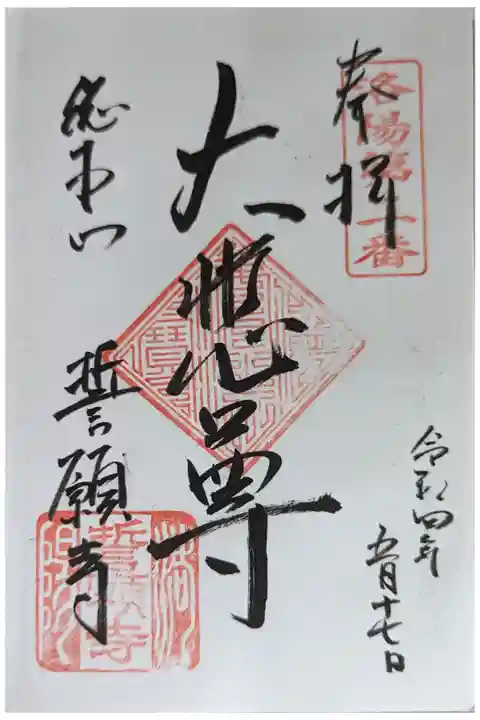 奉拝
洛陽第二番
大悲尊
総本山
誓願寺
令和四年
五月十七日
誓願寺